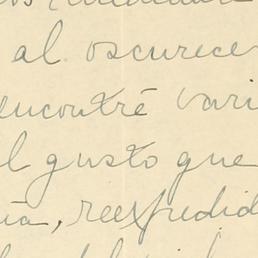 al oscurece
encontré vari
l gusto que
ía, reexpedid